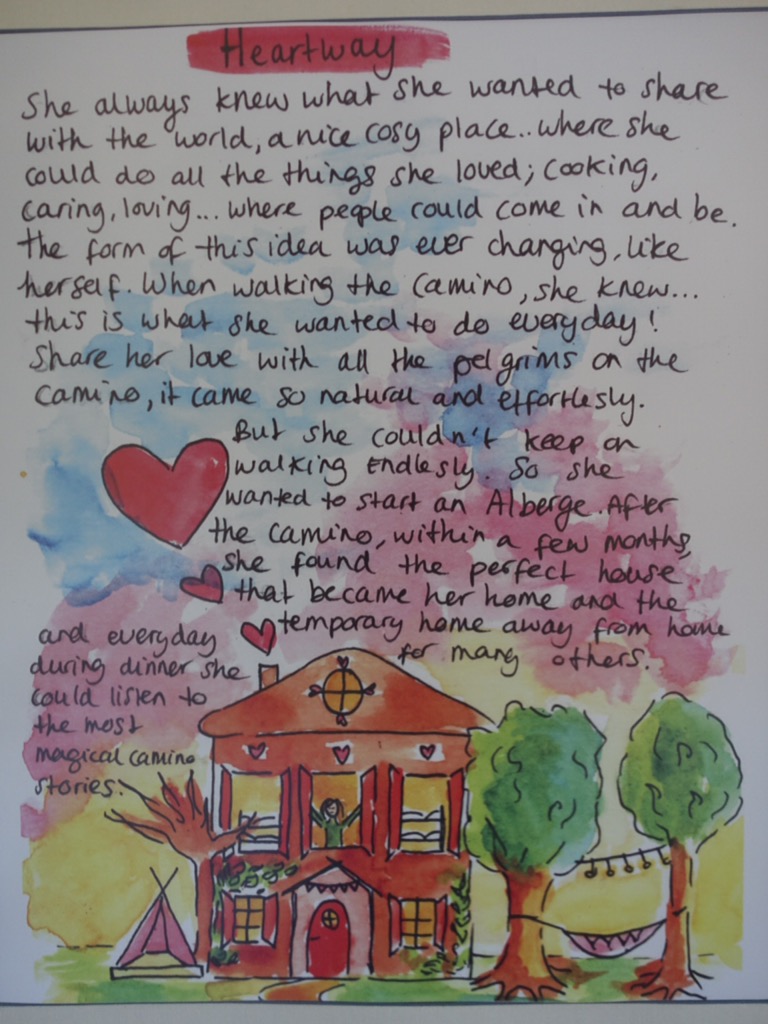 Heartway
She always knew what she wanted to share
with the world, a nice cosy place.. where she
could do all the things she loved; cooking,
caring, loving... where people could come in and be.
the form of this idea was ever changing, like
herself. When walking the Camino, she knew...
this is what she wanted to do everyday!
Share her love with all the pelgrims on the
Camino, it came so natural and effortlesly.
But she couldn't keep on
walking Endlesly. So she
wanted to start an Alberge. After
the Camino, within a few months,
she found the perfect house
that became her home and the
temporary home away from home
for many others.
and everyday
during dinner she
could listen to
the most
magical camino
stories.